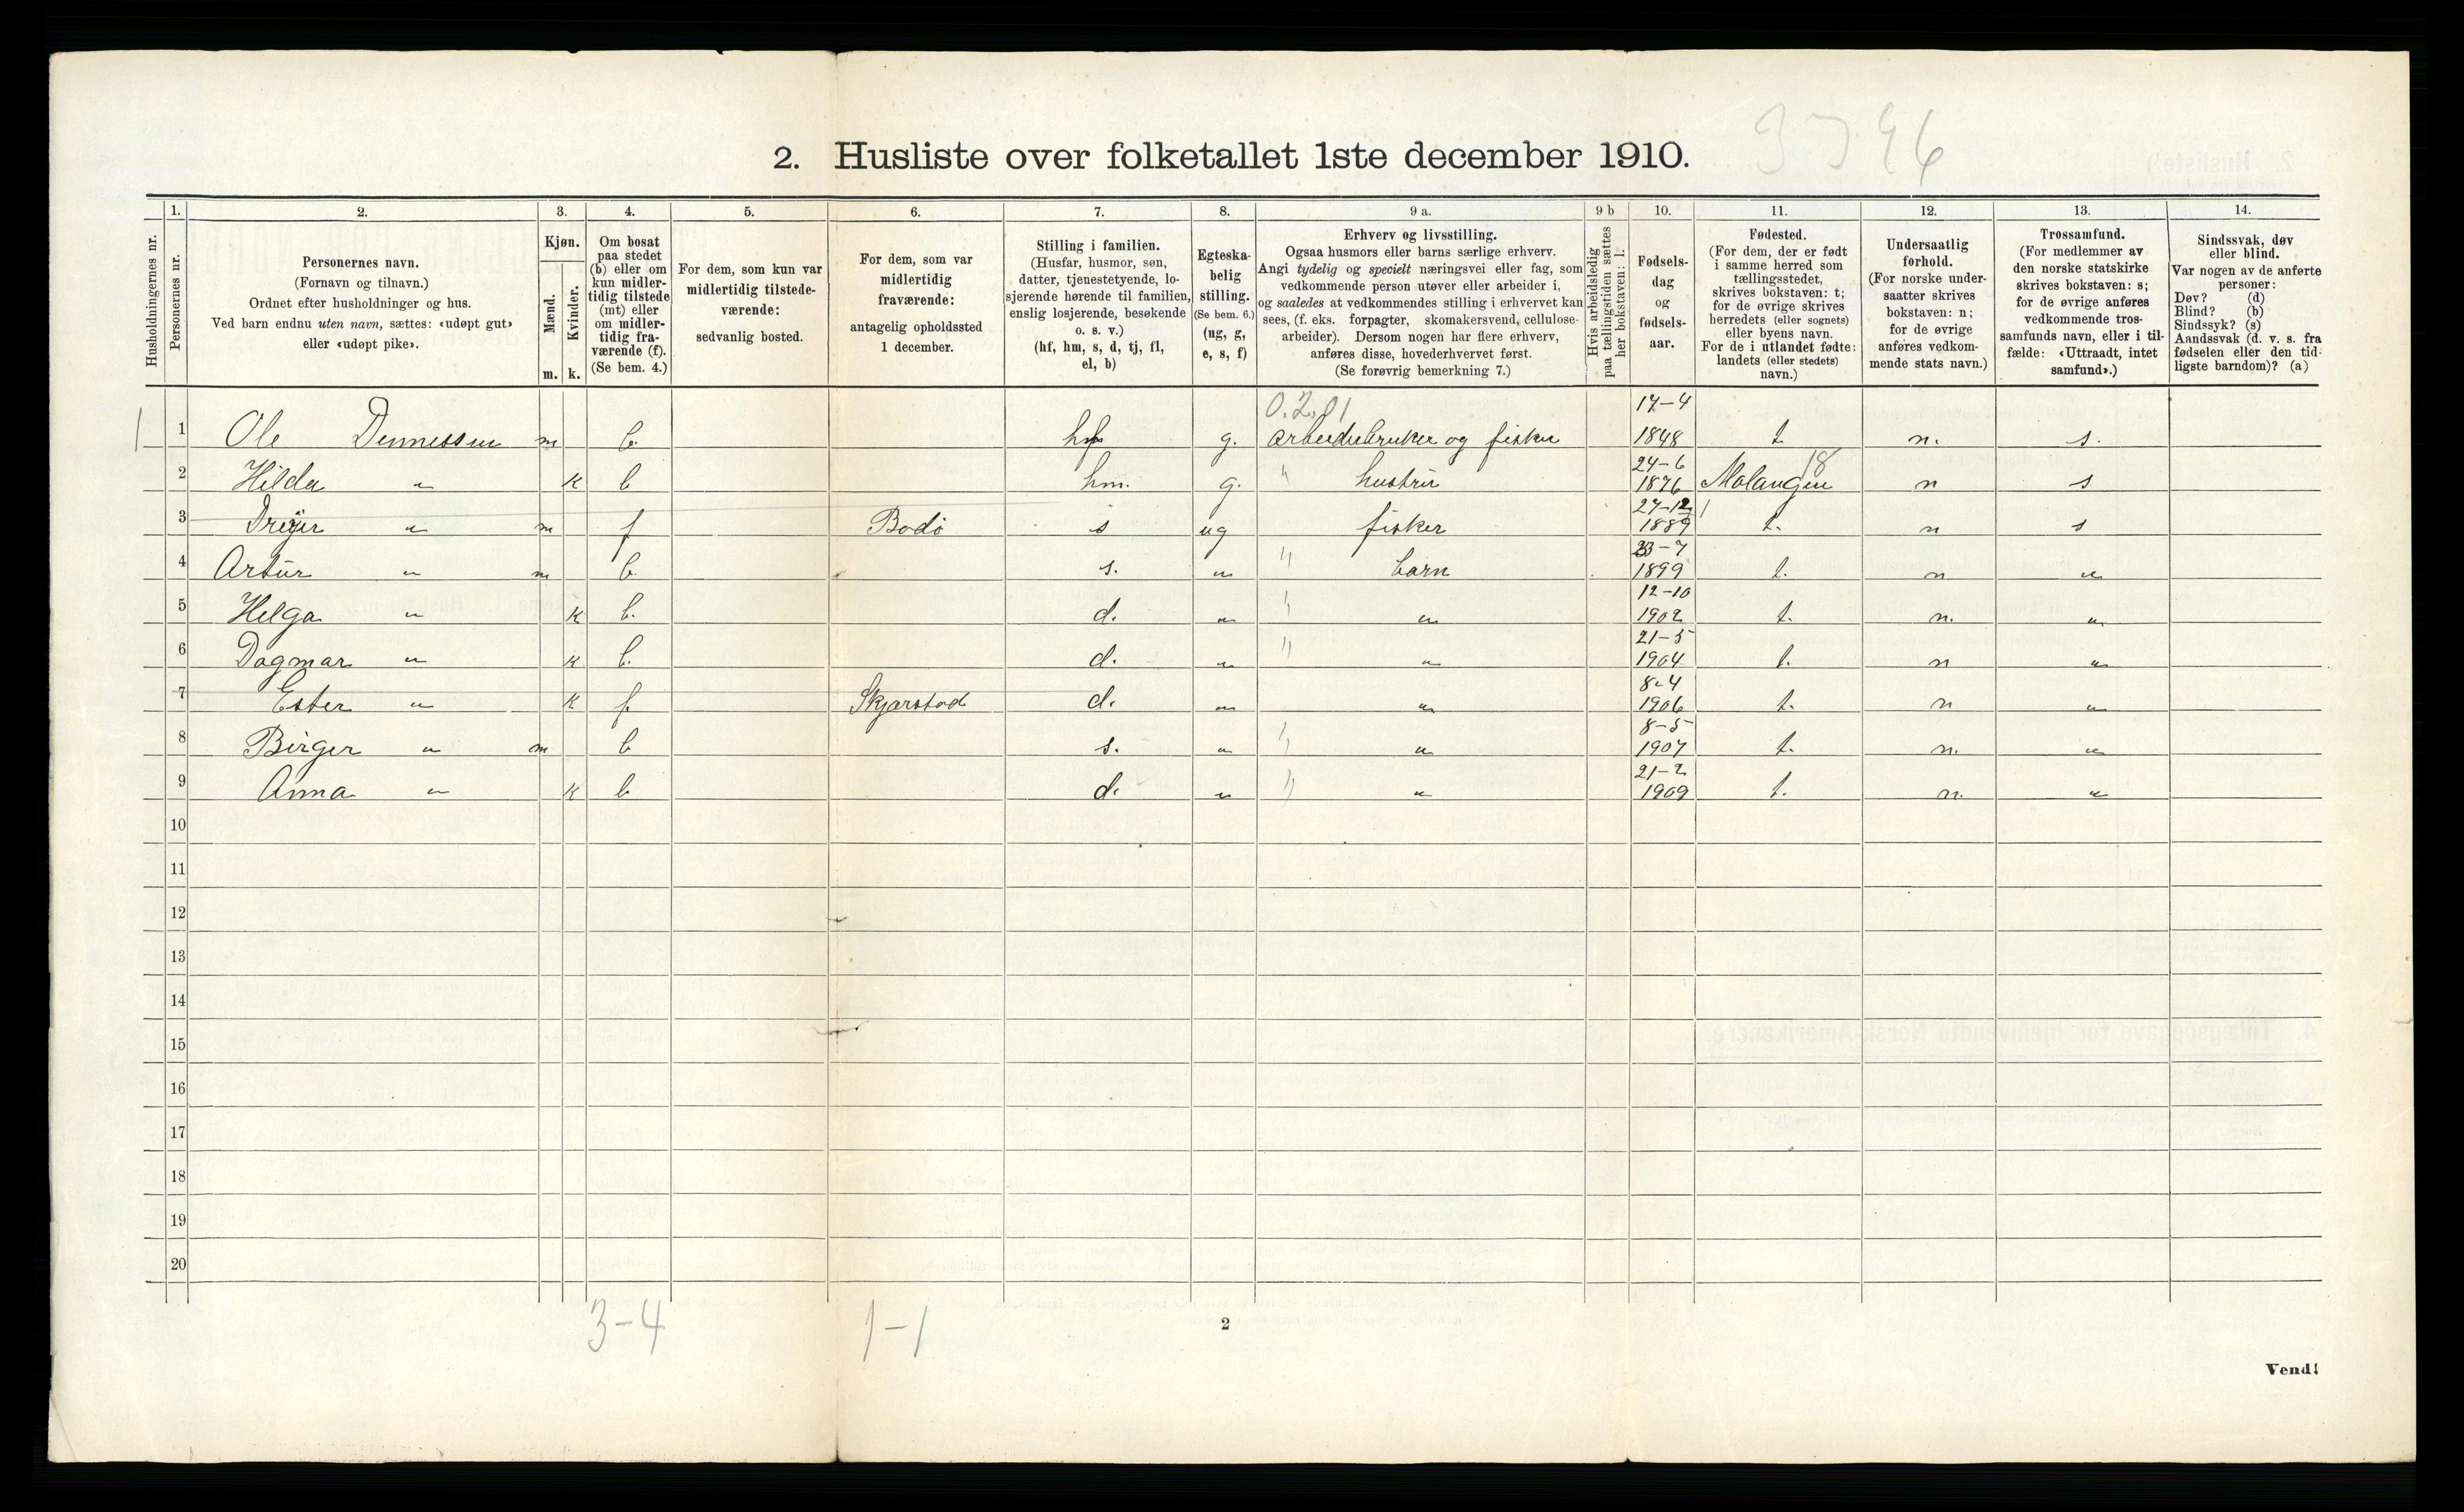 3 5 96
2. Husliste over folketallet 1ste december 1910.
1. 2. 3. 4. 5. 6. 7. 8. 9 a. 9 b 10. 11. 12. 13. 14.
Husholdningernes nr.
Personernes nr.
Personernes navn.
(Fornavn og tilnavn.)
Ordnet efter husholdninger og hus.
Ved barn endnu uten navn, sættes: «udøpt gut»
eller «udøpt pike».
Kjøn.
Mænd.
Kvinder.
m. k.
Om bosat
paa stedet
(b) eller om
kun midler-
tidig tilstede
(mt) eller
om midler-
tidig fra-
værende (f).
(Se bem. 4.)
For dem, som kun var
midlertidig tilstede-
værende:
sedvanlig bosted.
For dem, som var
midlertidig
fraværende:
antagelig opholdssted
1 december.
Stilling i familien.
(Husfar, husmor, søn,
datter, tjenestetyende, lo-
sjerende hørende til familien,
enslig losjerende, besøkende
o. s. v.)
(hf, hm, s, d, tj, fl,
el, b)
Egteska-
belig
stilling.
(Se bem. 6.)
(ug, g,
e, s, f)
Erhverv og livsstilling.
Ogsaa husmors eller barns særlige erhverv.
Angi tydelig og specielt næringsvei eller fag, som
vedkommende person utøver eller arbeider i,
og saaledes at vedkommendes stilling i erhvervet kan
sees, (f. eks. forpagter, skomakersvend, cellulose-
arbeider). Dersom nogen har flere erhverv,
anføres disse, hovederhvervet først.
(Se forøvrig bemerkning 7.)
Hvis arbeidsledig
paa tællingstiden sættes
her bokstaven: l.
Fødsels-
dag
og
fødsels-
aar.
Fødested.
(For dem, der er født
i samme herred som
tællingsstedet,
skrives bokstaven: t;
for de øvrige skrives
herredets (eller sognets)
eller byens navn.
For de i utlandet fødte:
landets (eller stedets)
navn.)
Undersaatlig
forhold.
(For norske under-
saatter skrives
bokstaven: n;
for de øvrige
anføres vedkom-
mende stats navn.)
Trossamfund.
(For medlemmer av
den norske statskirke
skrives bokstaven: s;
for de øvrige anføres
vedkommende tros-
samfunds navn, eller i til-
fælde: «Uttraadt, intet
samfund».)
Sindssvak, døv
eller blind.
Var nogen av de anførte
personer:
Døv? (d)
Blind? (b)
Sindssyk? (s)
Aandssvak (d. v. s. fra
fødselen eller den tid-
ligste barndom)? (a)
0.2.01 17-4
1 1 Ole Dennessen m b. hf g. og fisker 1848 t. n. s.
24-6 18
2 Hilda " k b hm. g. " hustrü 1876 Malangen n s
27-12
3 Dreijer " m f Bodö s ug fisker 1889 t. n s
23-7
4 Artür " m b. s. " " barn 1899 t. n "
12-10
5 Helga " k b. d. " " " 1902 t. n. "
21-5
6 Dagmar " k b. d. " " " 1904 t. n "
8-4
7 Ester " k f. Skjærstad d. " " 1906 t. n "
8-5
8 Birger " m b s. " " " 1907 t. n. "
21-2
9 Anna " k b d. " " " 1909 t. n. "
10
11
12
13
14
15
16
17
18
19
20
3-4 1-1
2
Vend!